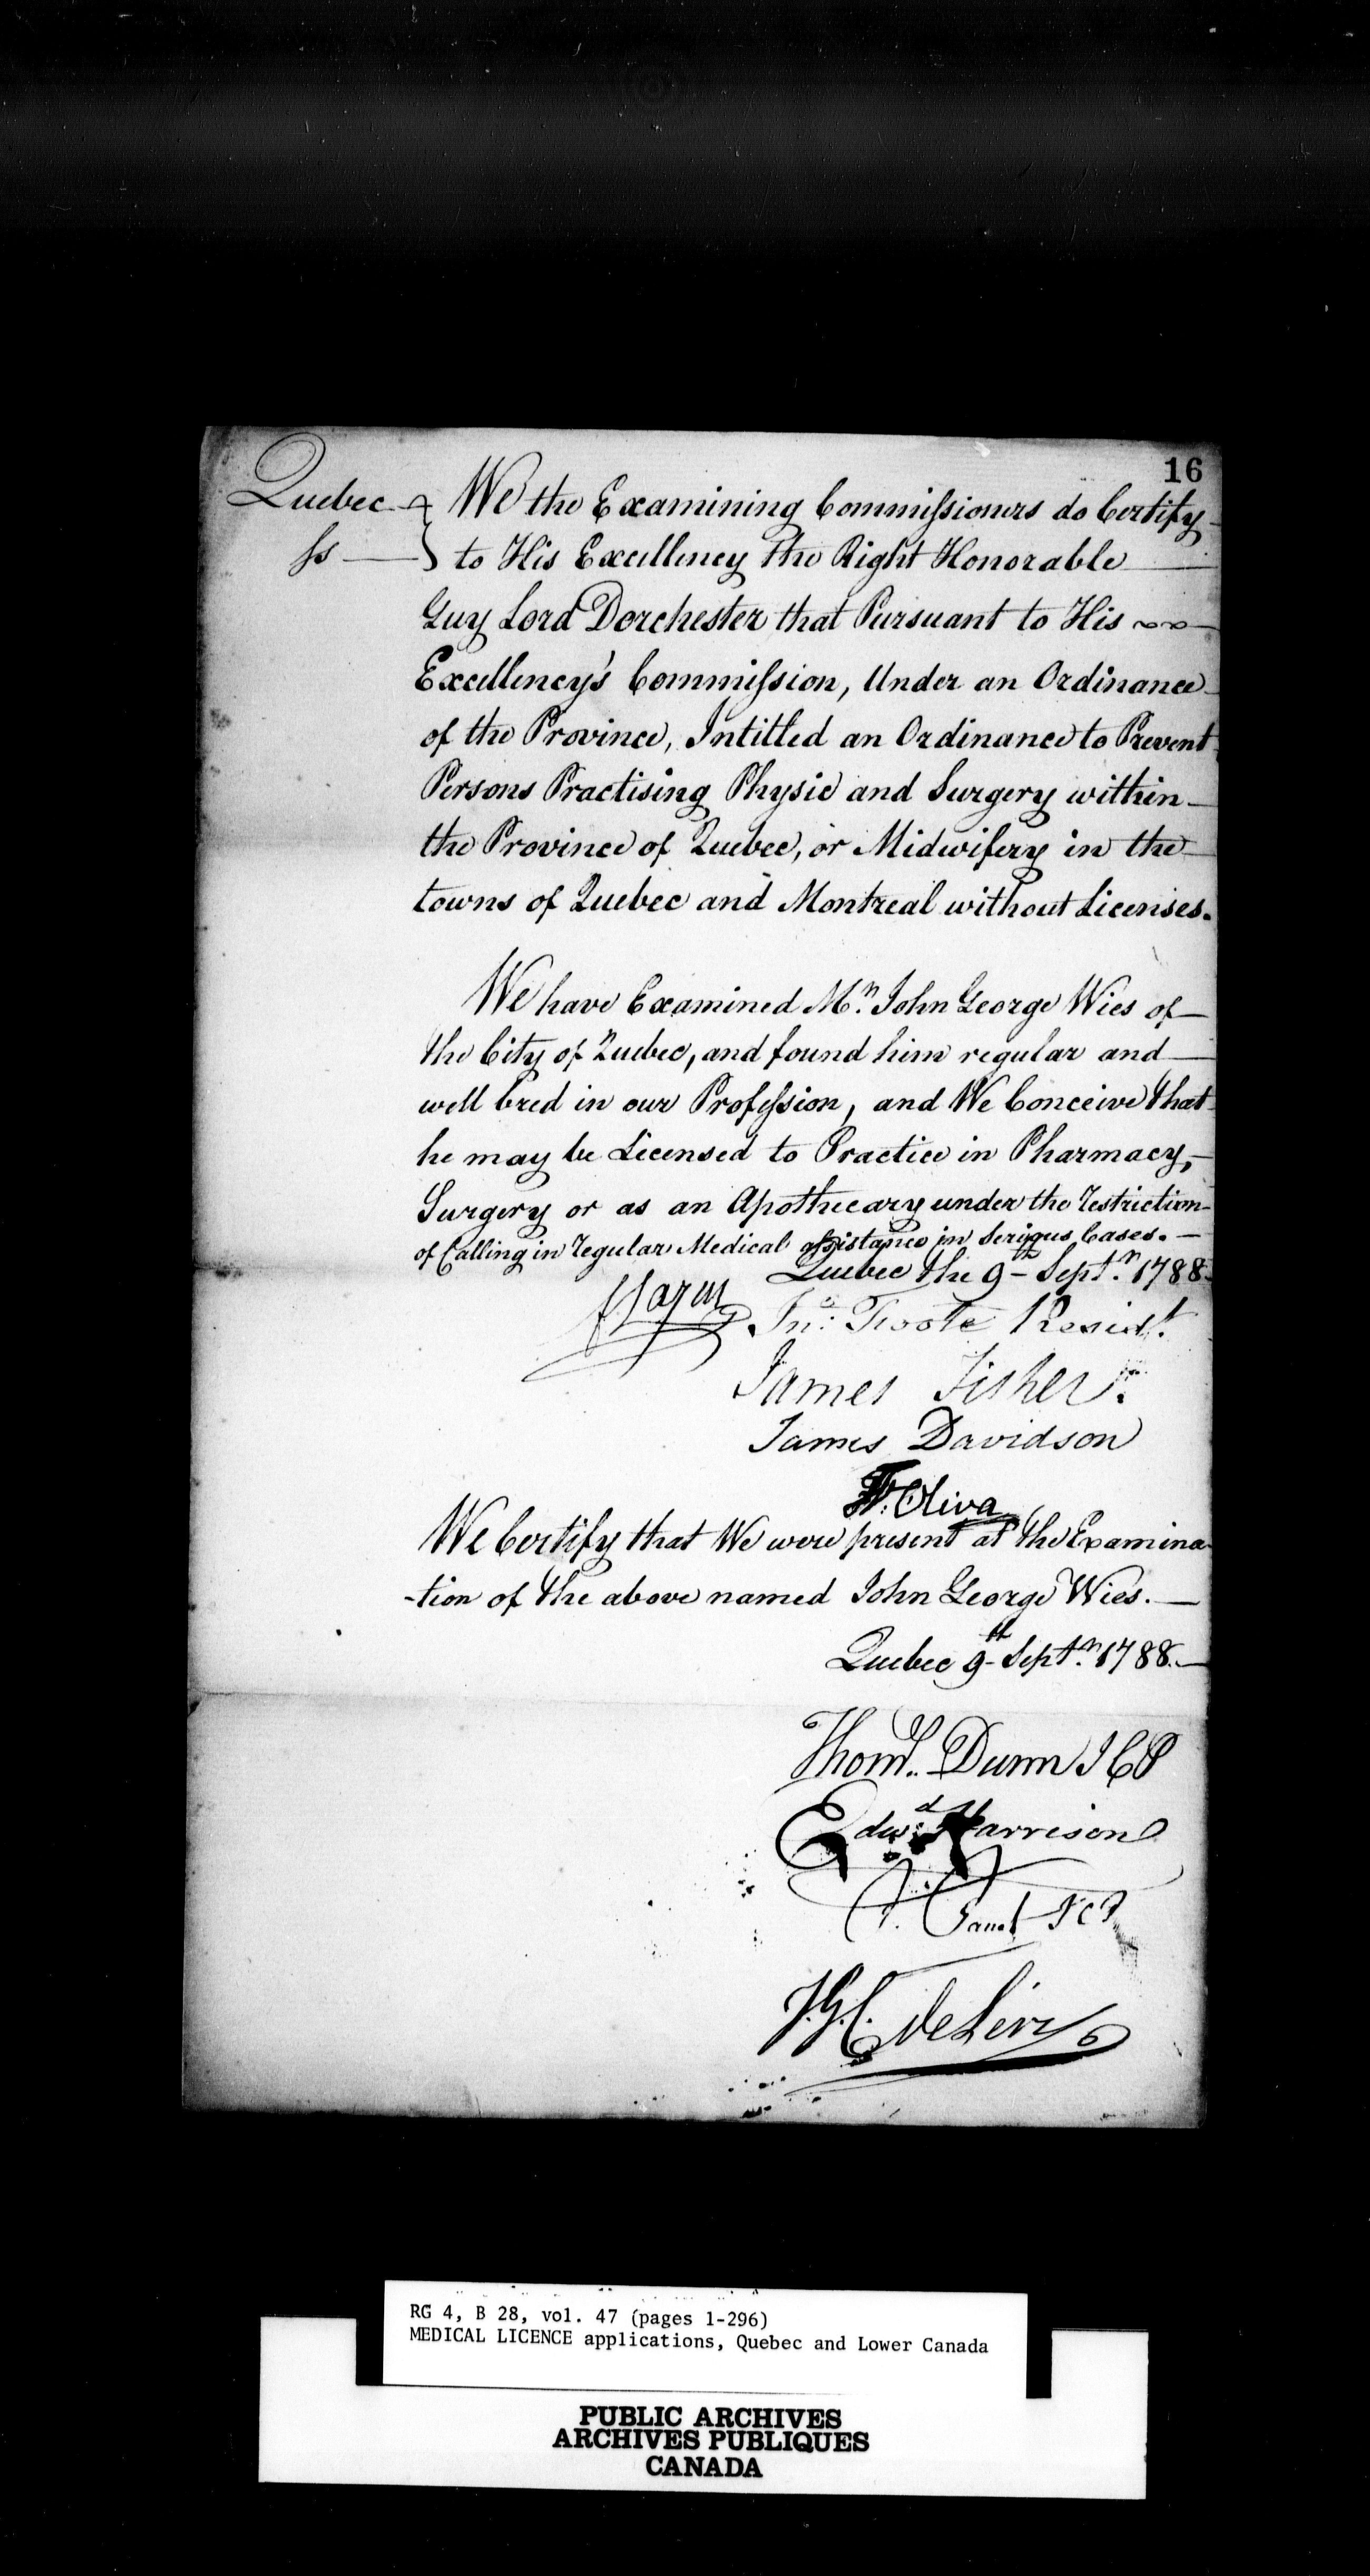 16
Quebec
ss
We the Examining Commissioners do Certify
to His Excellency the Right Honorable
Guy Lord Dorchester that Pursuant to His
Excellency's Commission, Under an Ordinance
of the Province, Intitled an Ordinance to Prevent
Persons Practising Physic and Surgery within
the Province of Quebec, or Midwifery in the
towns of Quebec and Montreal without Licenses.
We have Examined Mr. John George Wies of
the City of Quebec, and found him regular and
well bred in our Profession, and We Conceive that
he may be Licensed to Practice in Pharmacy,
Surgery or as an Apothecary under the restriction
of Calling in regular Medical assistance in Serious Cases.
Quebec the 9th Septr. 1788
Jno: Foote Presidt.
James Fisher.
James Davidson
F. Oliva
We Certify that We were present at the Examina
-tion of the above named John George Wies.
Quebec 9th Septr. 1788.
Thoms. Dunn JCP
Edwd. Harrison
JCP
J.G.C. De Lery
RG 4, B 28, vol. 47 (pages 1-296)
MEDICAL LICENCE applications, Quebec and Lower Canada
PUBLIC ARCHIVES
ARCHIVES PUBLIQUES
CANADA